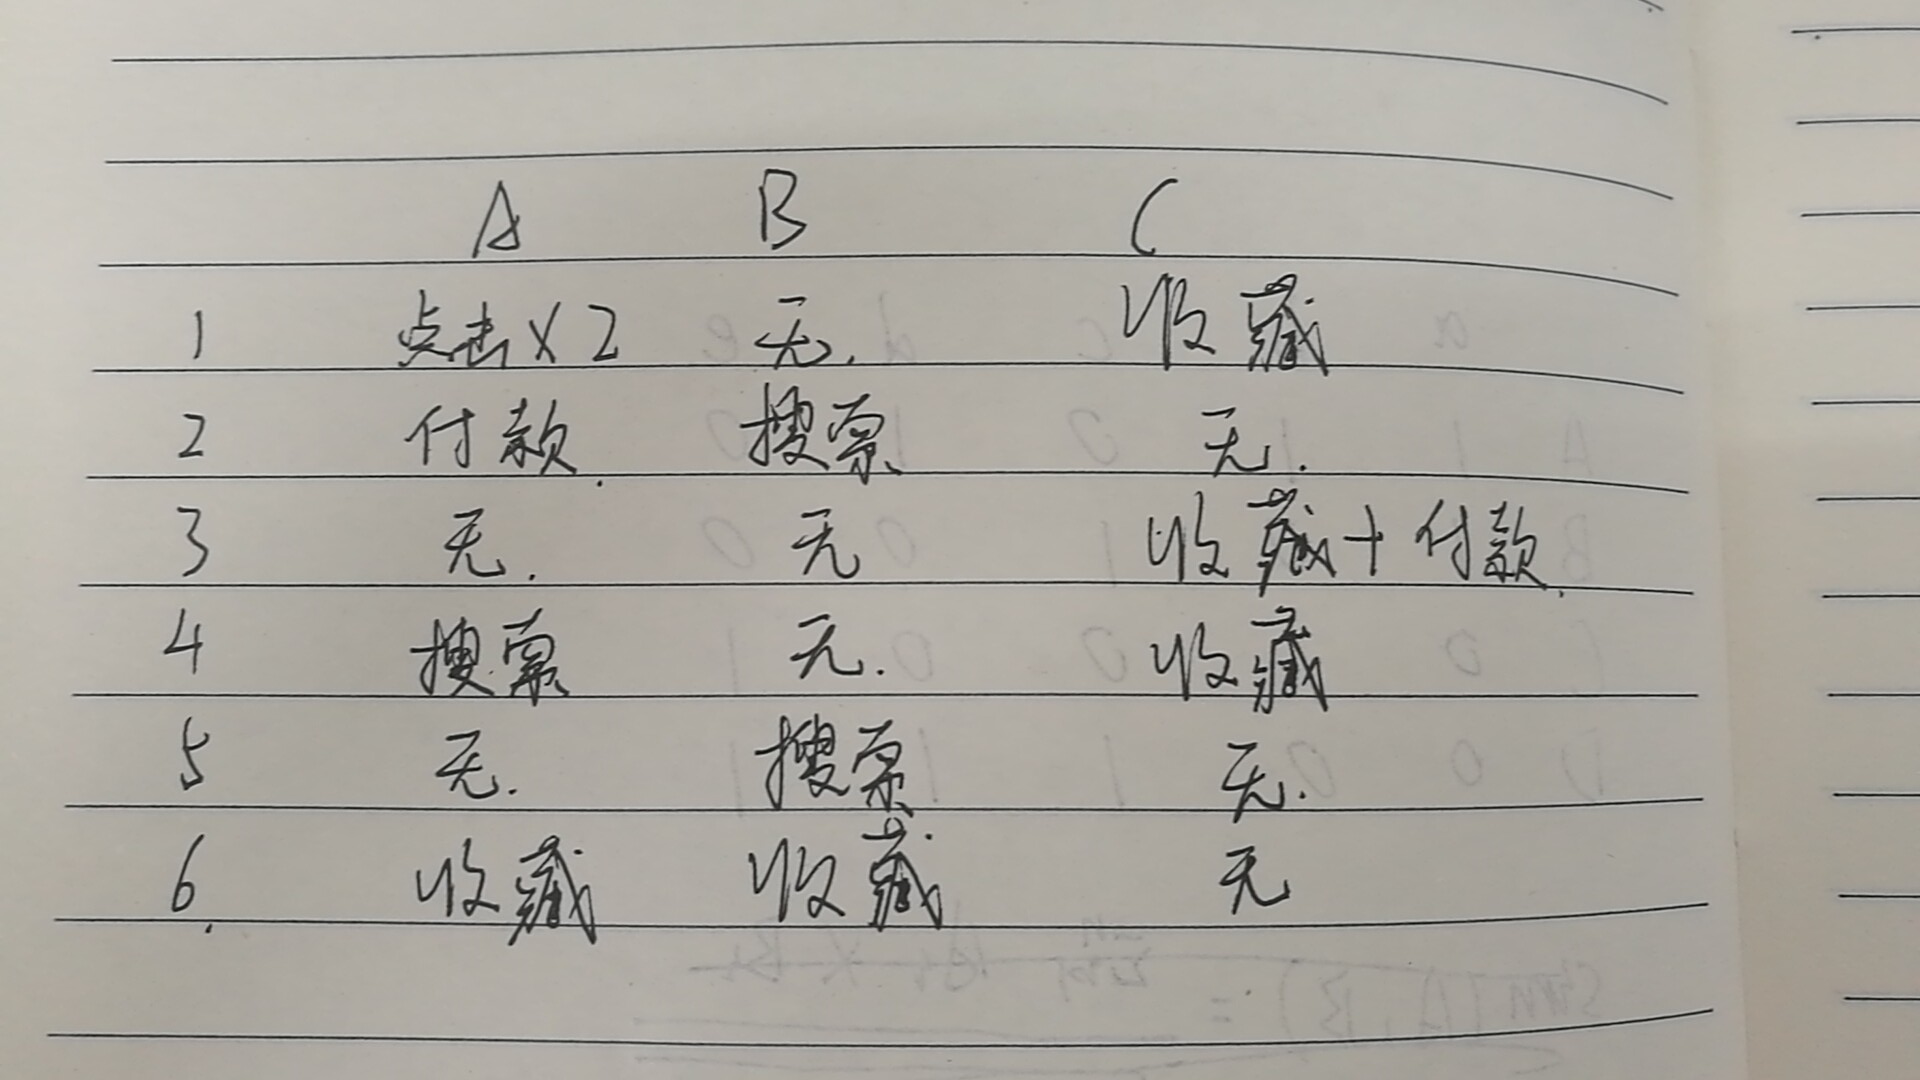 A B C
1 点击×2 无. 收藏
2 付款. 搜索 无.
3 无. 无 收藏+付款.
4 搜索 无. 收藏
5 无. 搜索 无.
6. 收藏 收藏 无